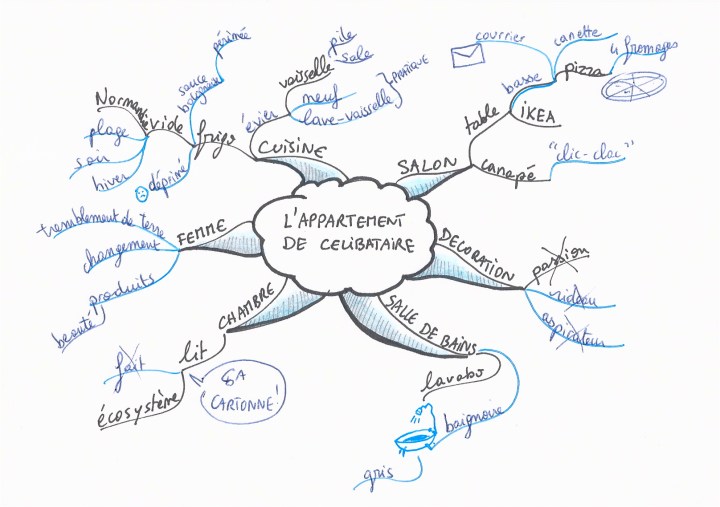 L'APPARTEMENT
DE CELIBATAIRE
CUISINE
évier
vaisselle
pile
sale
neuf
lave-vaisselle
PRATIQUE
frigo
sauce
bolognaise
périmée
vide
Normandie
plage
soir
hiver
déprimé
SALON
table
basse
courrier
canette
pizza
4 fromages
IKEA
canapé
"clic-clac"
DECORATION
passion
rideau
aspirateur
SALLE DE BAINS
lavabo
baignoire
gris
CHAMBRE
lit
fait
écosystème
ÇA
CARTONNE!
FEMME
tremblement de terre
changement
produits
beauté